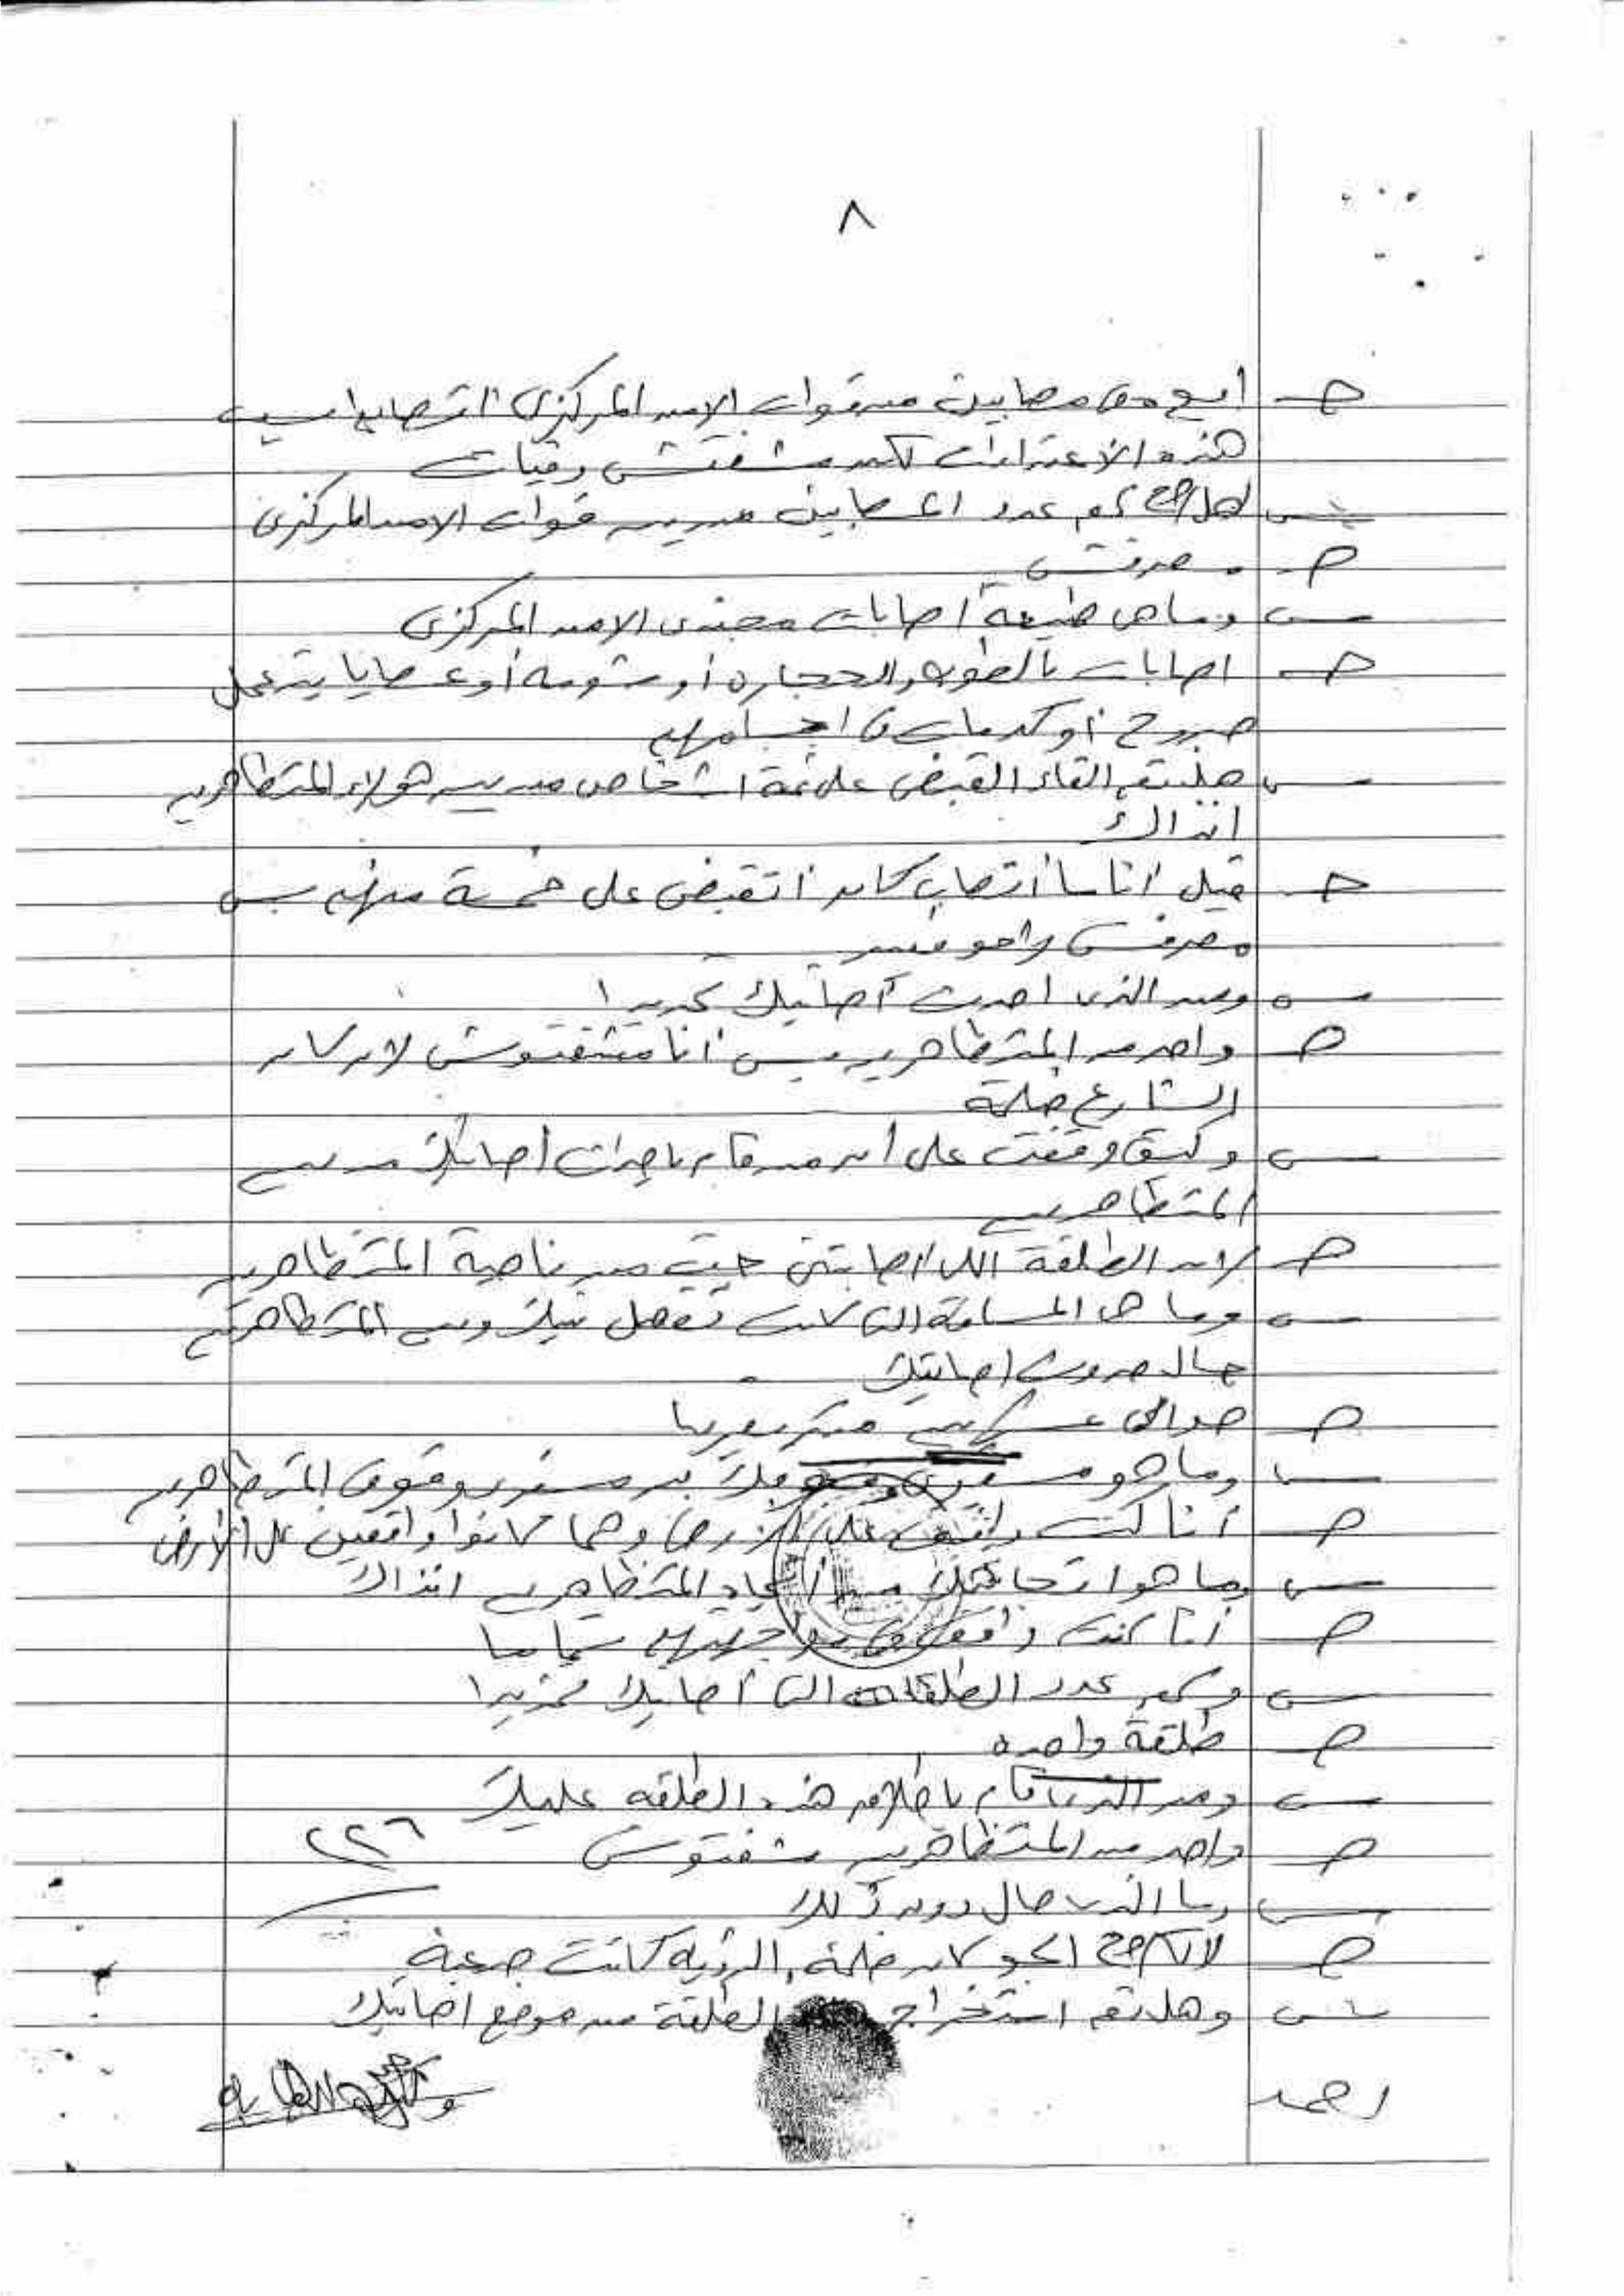 ٨
ج ايوه في مصابين من قوات الامن المركزي اتصابوا بسبب
هذه الاعتداءات لكن مشفتش وفيات
س كم عدد المصابين من بين قوات الامن المركزي
ج معرفش
س وما هي طبيعة اصابات مجندى الامن المركزي
ج اصابات بالطوب والحجاره أو شومه أو عصايا يتر عمل
جروح أو كدمات في اجسامهم
س هل تم القاء القبض على ثمة اشخاص من بين هؤلاء المتظاهرين
انذاك
ج قبل أنا ما أتصاب كان أتقبض على خمسة منهم بس
معرفش راحو فين
س ومن الذى احدث اصابتك تحديدا
ج واحد من المتظاهرين بس أنا مشفتوش لان كان
الشارع ضلمة
س وكيف وقفت على أن من قام باحداث أصابتك من بين
المتظاهرين
ج لان الطلقة اللى اصابتنى جيت من ناحية المتظاهرين
س وما هى المسافة التى كانت تفصل بينك وبين المتظاهرين
حال حدوث اصابتك
ج حوالى عشرين متر تقريبا
س وما هو مستوى وقوفك من مستوى وقوف المتظاهرين
ج أنا كنت واقف على الأرض وهما كانوا واقفين على الأرض
س وما هو اتجاهك من اتجاه المتظاهرين انذاك
ج أنا كنت واقف فى مواجهتهم تماما
س وكم عدد الطلقات التى أصابتك تحديدا
ج طلقة واحده
س ومن الذى قام باطلاق هذه الطلقه عليك
ج واحد من المتظاهرين مشفتوش
٢٢٦
س وما الذى حال دون ذلك
ج الجو كان ضلمة والرؤيه كانت صعبة
س وهل تم استخراج الطلقة من موضع اصابتك
احمد